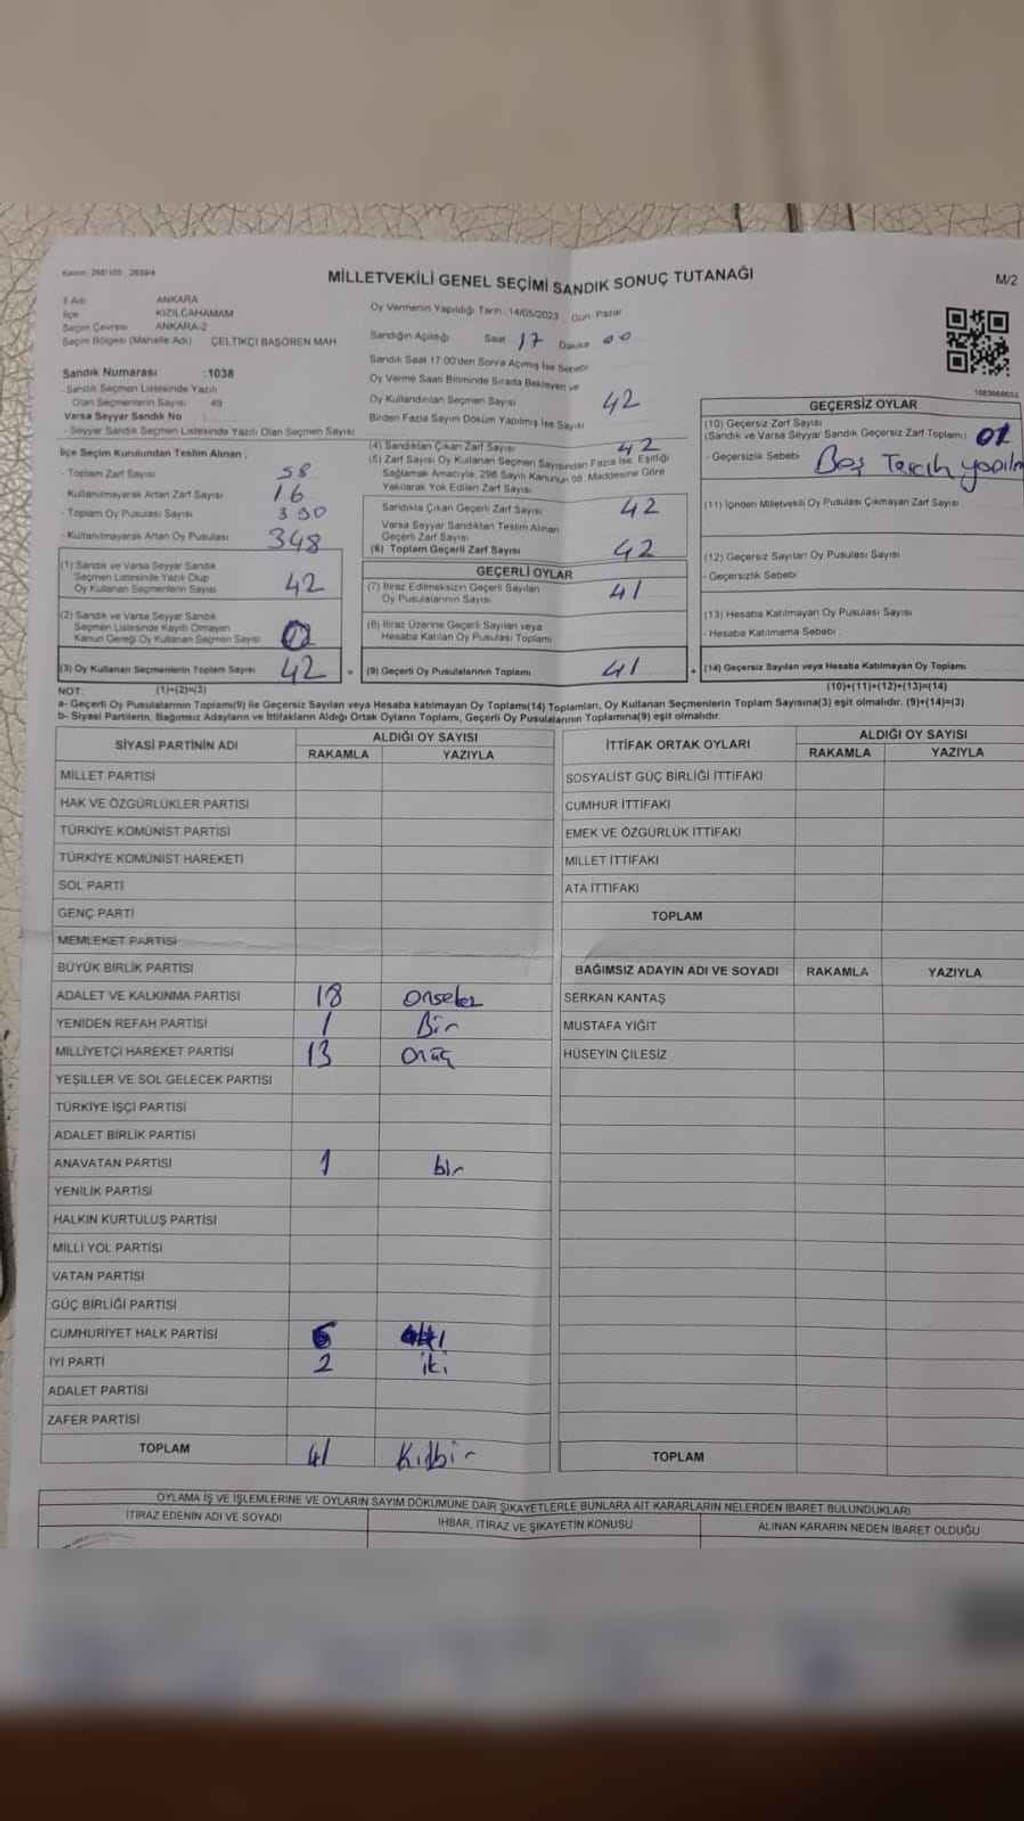 MİLLETVEKİLİ GENEL SEÇİMİ SANDIK SONUÇ TUTANAĞI
M/2
İl Adı ANKARA
İlçe KIZILCAHAMAM
Seçim Çevresi ANKARA-2
Seçim Bölgesi (Mahalle Adı) ÇELTİKÇİ BAŞÖREN MAH
Oy Vermenin Yapıldığı Tarih : 14/05/2023 Gün: Pazar
Sandığın Açılışı Saat 17 Dakika 00
Sandık Saat 17:00'den Sonra Açılmış İse Sebebi
Oy Verme Saati Bitiminde Sırada Bekleyen ve
Oy Kullandırılan Seçmen Sayısı 42
Birden Fazla Sayım Döküm Yapılmış İse Sayısı
Sandık Numarası :1038
- Sandık Seçmen Listesinde Yazılı
Olan Seçmenlerin Sayısı 49
Varsa Seyyar Sandık No
- Seyyar Sandık Seçmen Listesinde Yazılı Olan Seçmen Sayısı
İlçe Seçim Kurulundan Teslim Alınan ;
- Toplam Zarf Sayısı 58
- Kullanılmayarak Artan Zarf Sayısı 16
- Toplam Oy Pusulası Sayısı 390
- Kullanılmayarak Artan Oy Pusulası 348
(1) Sandık ve Varsa Seyyar Sandık
Seçmen Listesinde Yazılı Olup
Oy Kullanan Seçmenlerin Sayısı 42
(2) Sandık ve Varsa Seyyar Sandık
Seçmen Listesinde Kayıtlı Olmayan
Kanun Gereği Oy Kullanan Seçmen Sayısı
(3) Oy Kullanan Seçmenlerin Toplam Sayısı 42
(1)+(2)=(3)
(4) Sandıktan Çıkan Zarf Sayısı 42
(5) Zarf Sayısı Oy Kullanan Seçmen Sayısından Fazla İse, Eşitliği
Sağlamak Amacıyla, 298 Sayılı Kanunun 98. Maddesine Göre
Yakılarak Yok Edilen Zarf Sayısı
Sandıkta Çıkan Geçerli Zarf Sayısı 42
Varsa Seyyar Sandıktan Teslim Alınan
Geçerli Zarf Sayısı
(6) Toplam Geçerli Zarf Sayısı 42
GEÇERLİ OYLAR
(7) İtiraz Edilmeksizin Geçerli Sayılan
Oy Pusulalarının Sayısı 41
(8) İtiraz Üzerine Geçerli Sayılan veya
Hesaba Katılan Oy Pusulası Toplamı
(9) Geçerli Oy Pusulalarının Toplamı 41
GEÇERSİZ OYLAR
(10) Geçersiz Zarf Sayısı
(Sandık ve Varsa Seyyar Sandık Geçersiz Zarf Toplamı)
- Geçersizlik Sebebi Boş Tercih
(11) İçinden Milletvekili Oy Pusulası Çıkmayan Zarf Sayısı
(12) Geçersiz Sayılan Oy Pusulası Sayısı
- Geçersizlik Sebebi
(13) Hesaba Katılmayan Oy Pusulası Sayısı
- Hesaba Katılmama Sebebi
(14) Geçersiz Sayılan veya Hesaba Katılmayan Oy Toplamı
(10)+(11)+(12)+(13)=(14)
NOT:
a- Geçerli Oy Pusulalarının Toplamı(9) ile Geçersiz Sayılan veya Hesaba katılmayan Oy Toplamı(14) Toplamları, Oy Kullanan Seçmenlerin Toplam Sayısına(3) eşit olmalıdır. (9)+(14)=(3)
b- Siyasi Partilerin, Bağımsız Adayların ve İttifakların Aldığı Ortak Oyların Toplamı, Geçerli Oy Pusulalarının Toplamına(9) eşit olmalıdır.
SİYASİ PARTİNİN ADI ALDIĞI OY SAYISI
RAKAMLA YAZIYLA
MİLLET PARTİSİ
HAK VE ÖZGÜRLÜKLER PARTİSİ
TÜRKİYE KOMÜNİST PARTİSİ
TÜRKİYE KOMÜNİST HAREKETİ
SOL PARTİ
GENÇ PARTİ
MEMLEKET PARTİSİ
BÜYÜK BİRLİK PARTİSİ
ADALET VE KALKINMA PARTİSİ 18 onsekiz
YENİDEN REFAH PARTİSİ 1 Bir
MİLLİYETÇİ HAREKET PARTİSİ 13 onüç
YEŞİLLER VE SOL GELECEK PARTİSİ
TÜRKİYE İŞÇİ PARTİSİ
ADALET BİRLİK PARTİSİ
ANAVATAN PARTİSİ 1 bir
YENİLİK PARTİSİ
HALKIN KURTULUŞ PARTİSİ
MİLLİ YOL PARTİSİ
VATAN PARTİSİ
GÜÇ BİRLİĞİ PARTİSİ
CUMHURİYET HALK PARTİSİ 6 altı
İYİ PARTİ 2 iki
ADALET PARTİSİ
ZAFER PARTİSİ
TOPLAM 41 Kırkbir
İTTİFAK ORTAK OYLARI ALDIĞI OY SAYISI
RAKAMLA YAZIYLA
SOSYALİST GÜÇ BİRLİĞİ İTTİFAKI
CUMHUR İTTİFAKI
EMEK VE ÖZGÜRLÜK İTTİFAKI
MİLLET İTTİFAKI
ATA İTTİFAKI
TOPLAM
BAĞIMSIZ ADAYIN ADI VE SOYADI RAKAMLA YAZIYLA
SERKAN KANTAŞ
MUSTAFA YİĞİT
HÜSEYİN ÇİLESİZ
TOPLAM
OYLAMA İŞ VE İŞLEMLERİNE VE OYLARIN SAYIM DÖKÜMÜNE DAİR ŞİKAYETLERLE BUNLARA AİT KARARLARIN NELERDEN İBARET BULUNDUKLARI
İTİRAZ EDENİN ADI VE SOYADI İHBAR, İTİRAZ VE ŞİKAYETİN KONUSU ALINAN KARARIN NEDEN İBARET OLDUĞU